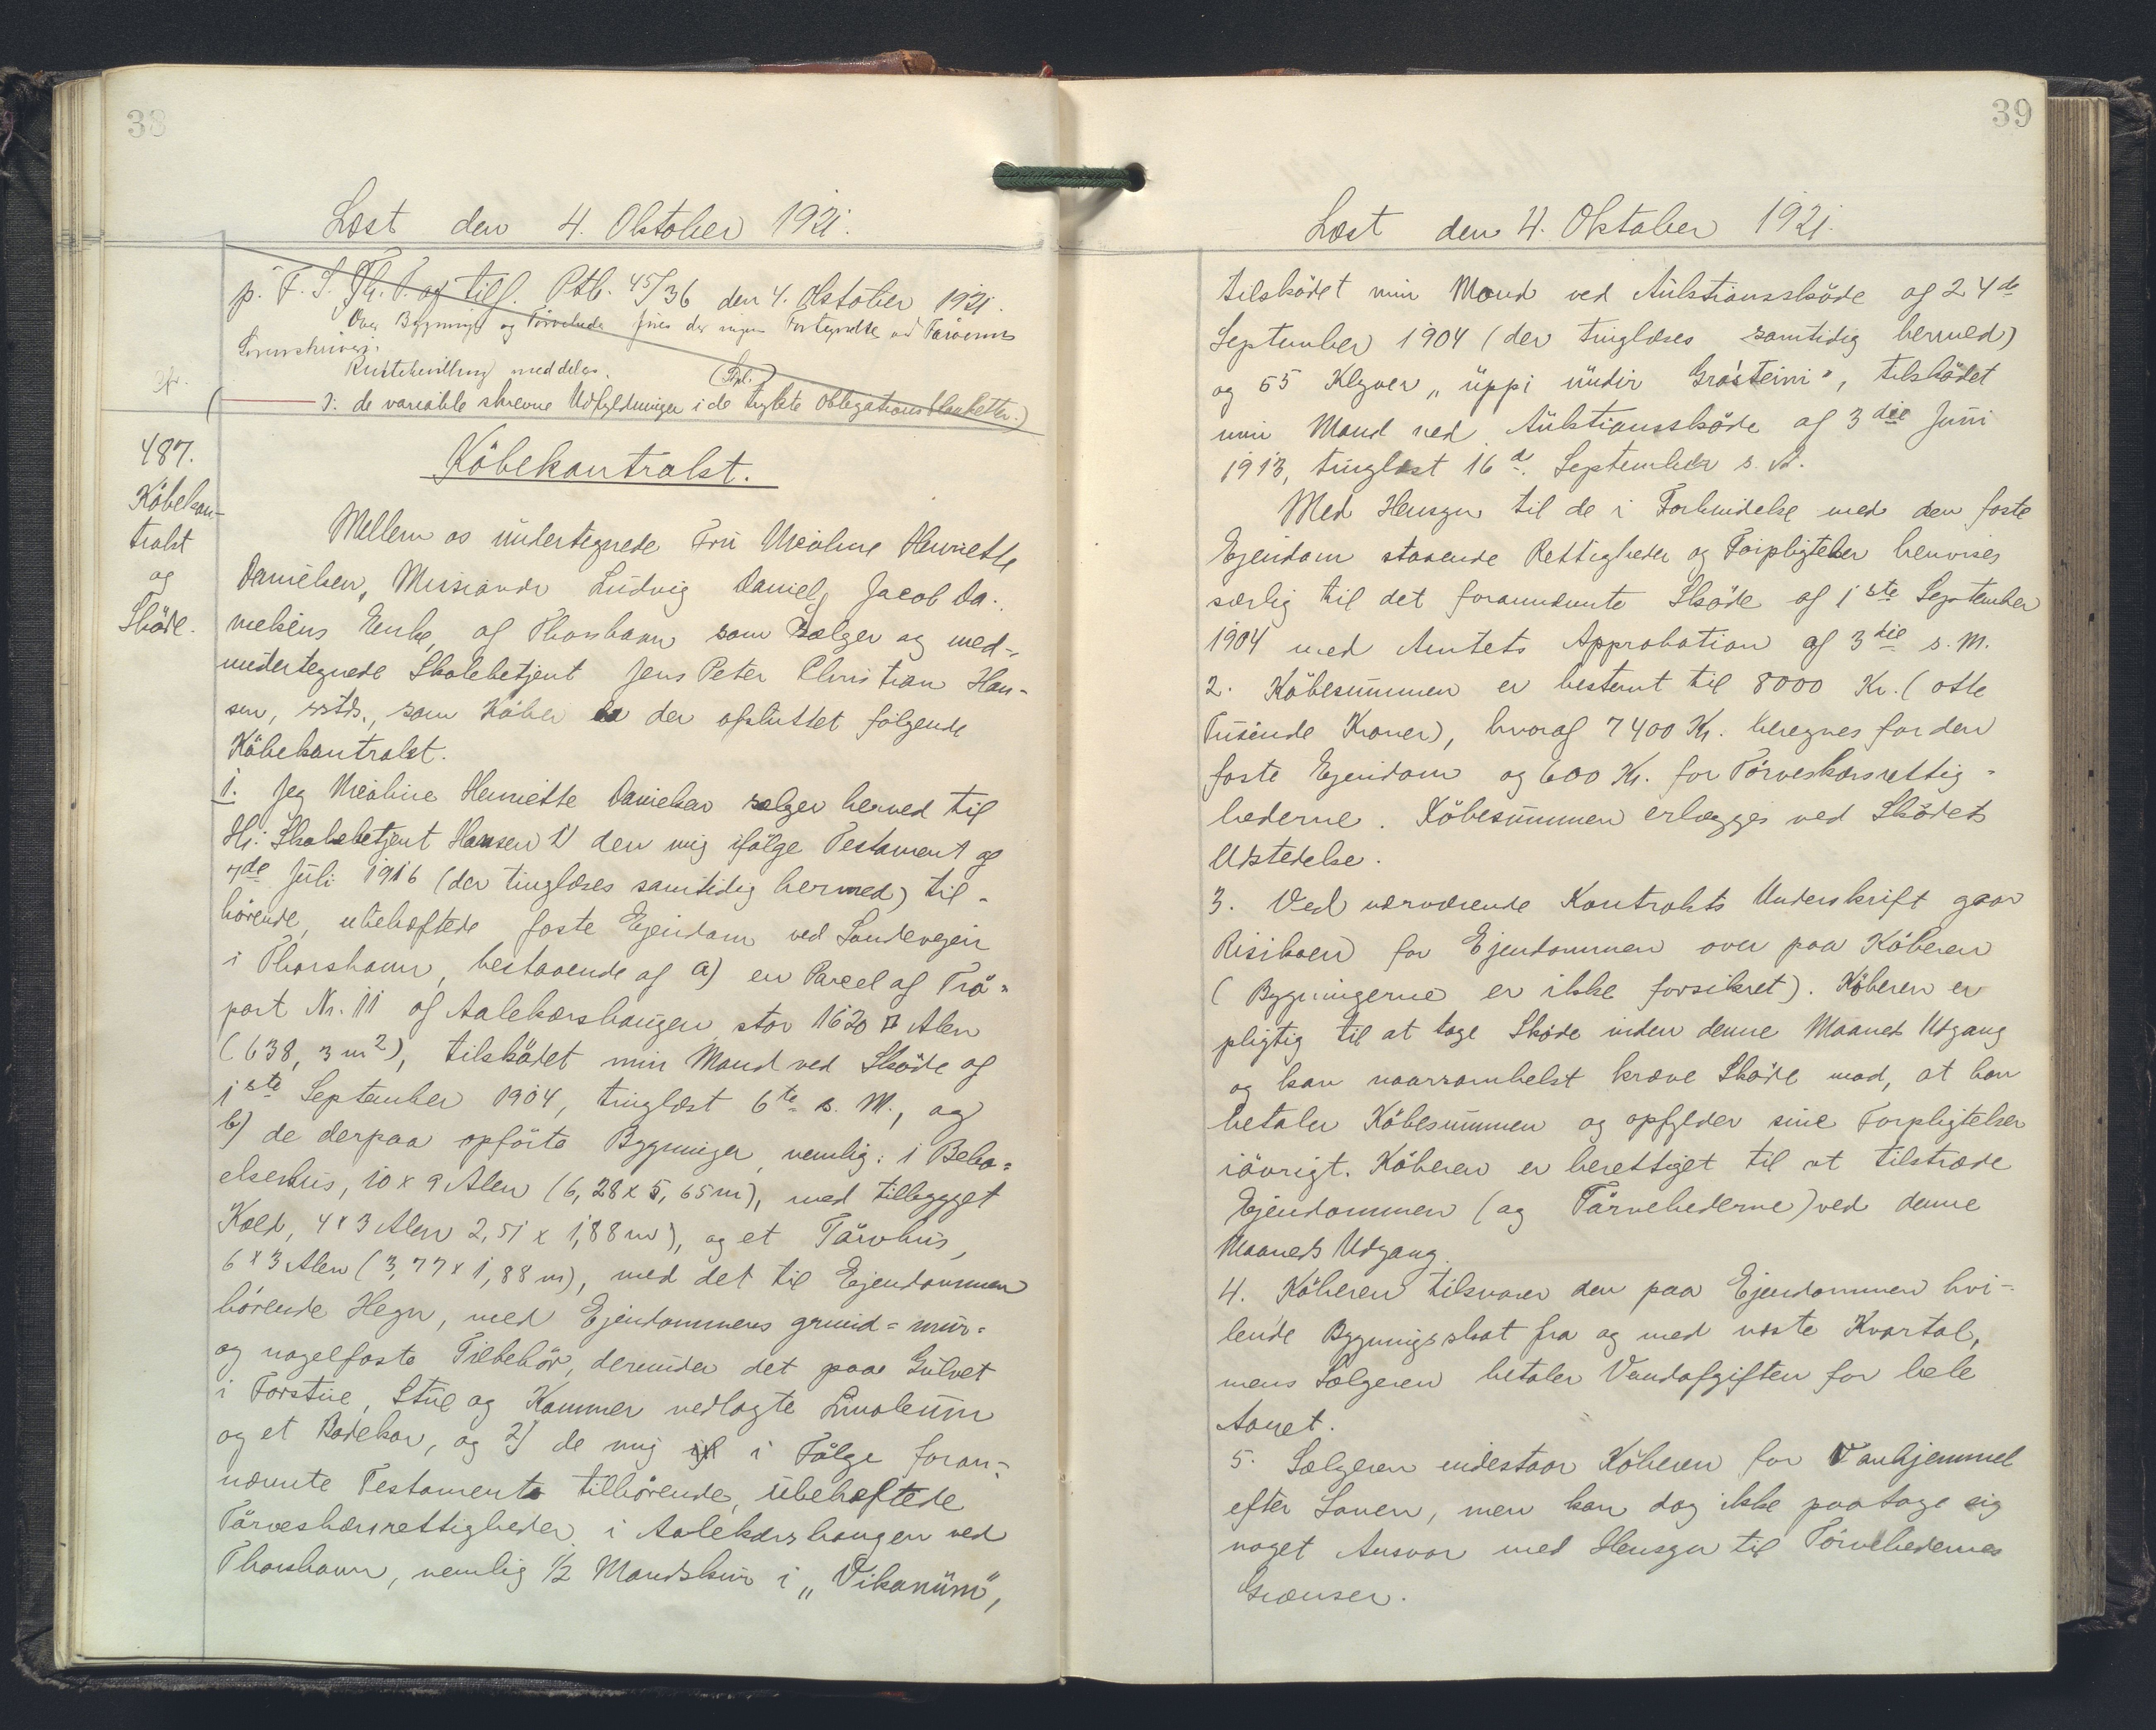 38
Læst den 4. Oktober 1921.
p. F. S. Th. P. og tilf. Ptb. 45/36 den 4. Oktober 1921.
Over Bygninger og Törveheder föres der ingen Fortegnelse ved Færöernes
Sorenskriveri.
Rustebevilling meddeles.
(
ɔ: de variable skrevne Udfyldninger i de trykte Obligationsblanketter.)
487.
Köbekon-
trakt
og
Sköde.
Köbekontrakt.
Mellem os undertegnede Fru Nicoline Henriette
Danielsen, Missionær Ludvig Daniel Jacob Da-
nielsens Enke, af Thorshavn som Sælger og med-
undertegnede Skolebetjent Jens Peter Christian Han-
sen, sstds., som Köber er der afsluttet fölgende
Köbekontrakt.
1. Jeg Nicoline Henriette Danielsen sælger herved til
Hr. Skolebetjent Hansen 1) den mig ifölge Testament af
7de Juli 1916 (der tinglæses samtidig hermed) til-
hörende, ubehæftede faste Ejendom ved Landevejen
i Thorshavn, bestaaende af a) en Parcel af Trö-
part Nr. 11 af Aalekærshaugen stor 1620 □ Alen
(638,3 m²), tilsködet min Mand ved Sköde af
1ste September 1904, tinglæst 6te s. M., og
b) de derpaa opförte Bygninger, nemlig: 1 Bebo-
elseshus, 10 x 9 Alen (6,28 x 5,65 m), med tilbygget
Kæld, 4 x 3 Alen 2,51 x 1,88 m), og et Törvhus,
6 x 3 Alen (3,77 x 1,88 m), med det til Ejendommen
hörende Hegn, med Ejendommens grund- mur-
og nagelfaste Tilbehör, derunder det paa Gulvet
i Forstue, Stue og Kammer vedlagte Linoleum
og et Badekar, og 2) de mig i Fölge foran-
nævnte Testamente tilhörende, ubehæftede
Törveskærsrettigheder i Aalekærshaugen ved
Thorshavn, nemlig 1/2 Mandskur i „Vikanum",
39
Læst den 4. Oktober 1921.
tilsködet min Mand ved Auktionssköde af 24de
September 1904 (der tinglæses samtidig hermed)
og 55 Klyver „uppi undir Grásteini", tilsködet
min Mand ved Auktionssköde af 3die Juni
1913, tinglæst 16d. September s. A.
Med Hensyn til de i Forbindelse med den faste
Ejendom staaende Rettigheder og Forpligtelser henvises
særlig til det forannævnte Sköde af 1ste September
1904 med Amtets Approbation af 3die s. M.
2. Köbesummen er bestemt til 8000 Kr. (otte
Tusinde Kroner), hvoraf 7400 Kr. beregnes for den
faste Ejendom og 600 Kr. for Törveskærsrettig-
hederne. Köbesummen erlægges ved Sködets
Udstedelse.
3. Ved nærværende Kontrakts Underskrift gaar
Risikoen for Ejendommen over paa Köberen
(Bygningerne er ikke forsikret). Köberen er
pligtig til at tage Sköde inden denne Maaneds Udgang
og kan naarsomhelst kræve Sköde mod, at han
betaler Köbesummen og opfylder sine Forpligtelser
iövrigt. Köberen er berettiget til at tiltræde
Ejendommen (og Törvehederne) ved denne
Maaneds Udgang.
4. Köberen tilsvarer den paa Ejendommen hvi-
lende Bygningsskat fra og med næste Kvartal,
mens Sælgeren betaler Vandafgiften for hele
Aaret.
5. Sælgeren indestaar Köberen for Vanhjemmel
efter Loven, men kan dog ikke paatage sig
noget Ansvar med Hensyn til Törvehedernes
Grænser.